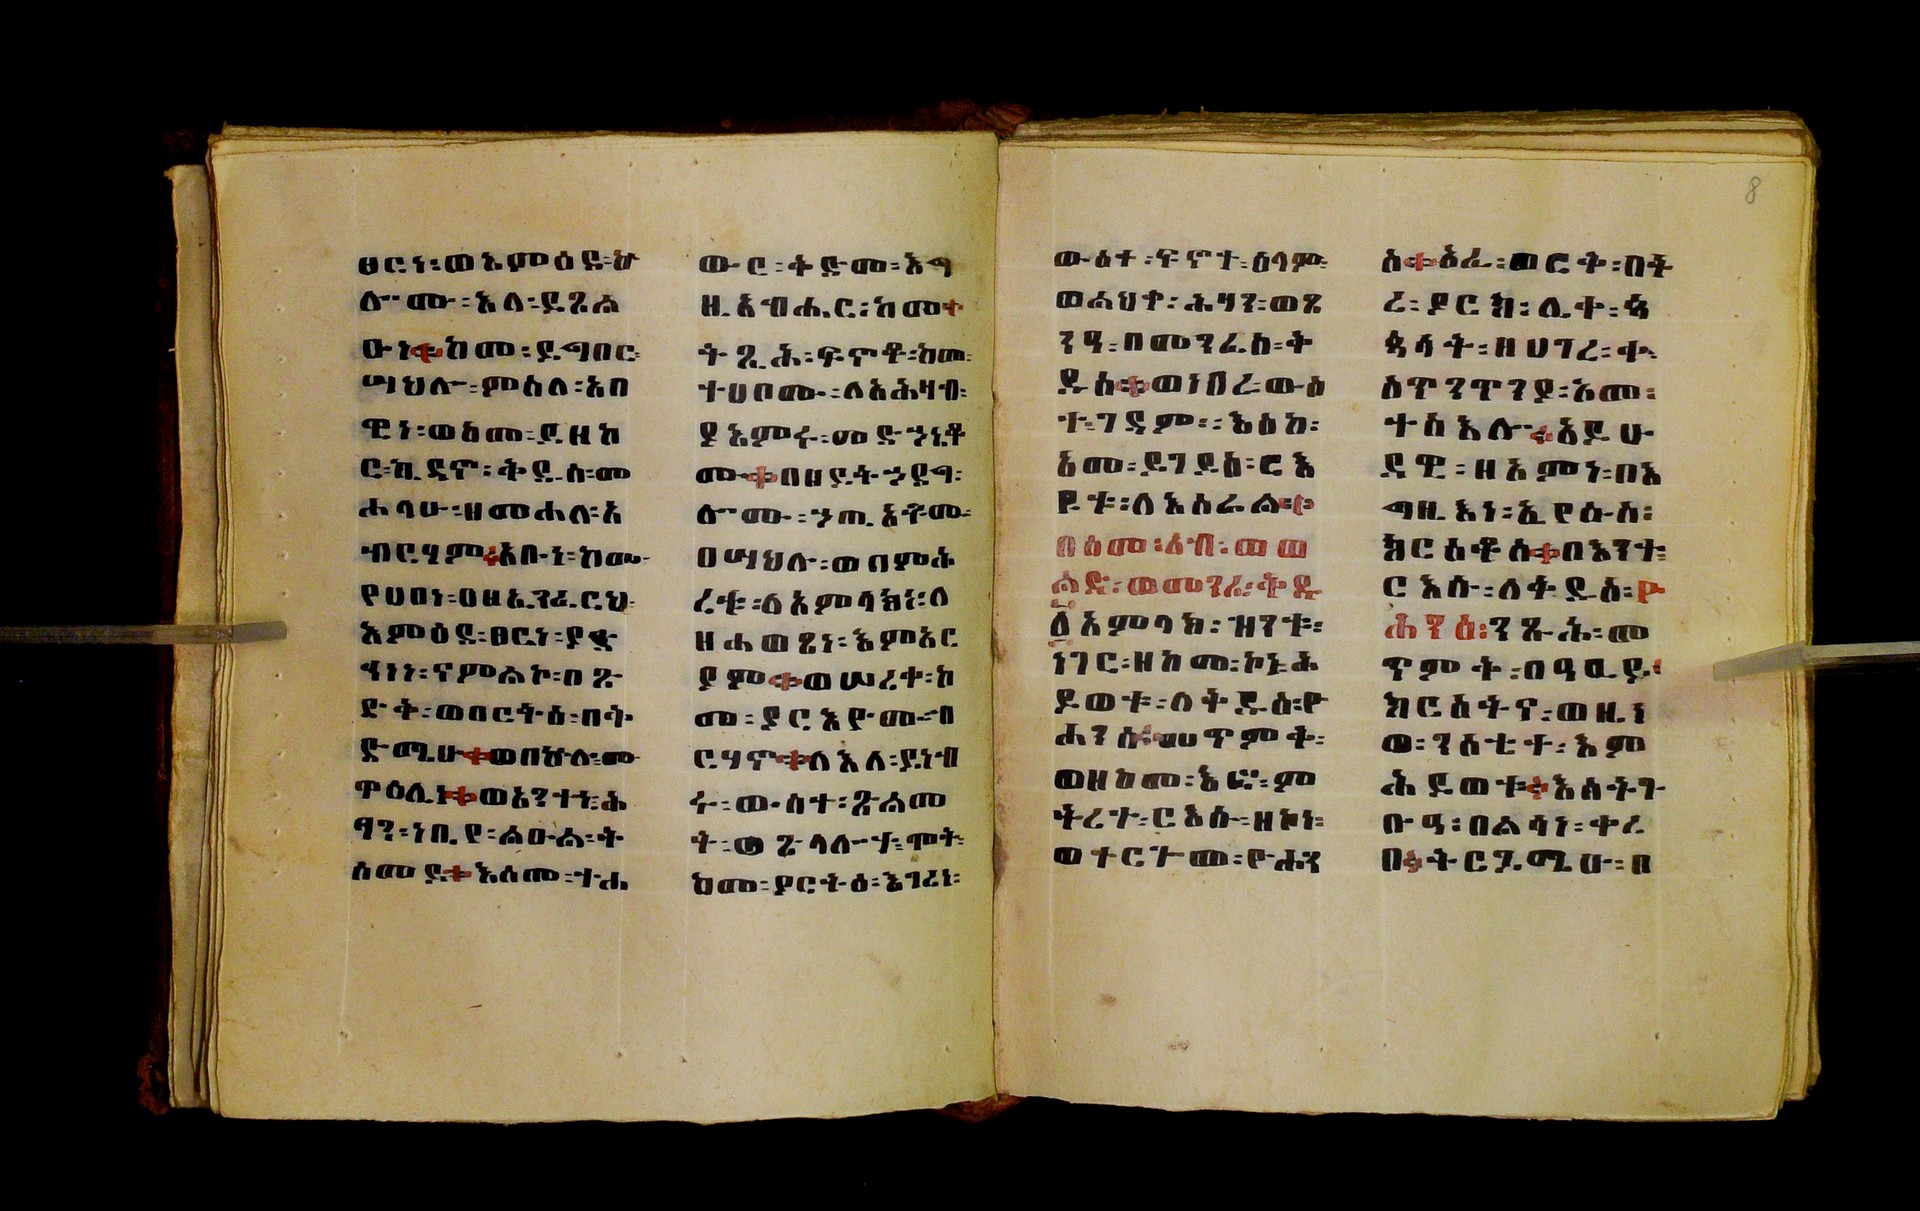 ፀርነ፡ወእምዕደ፡ኵ
ሎሙ፡እለ፡ይጸል
ዑነ።ከመ፡ይግበር፡
ሣህሎ፡ምስለ፡አበ
ዊነ፡ወከመ፡ይዘከ
ር፡ኪዳኖ፡ቅዱስ፡መ
ሐላሁ፡ዘመሐለ፡ለአ
ብርሃም፡አቡነ፡ከመ፡
የሀበነ፡በዘኢንፈርህ፡
እምዕደ፡ፀርነ፡ያድ
ኅነነ፡ናምልኮ፡በጽ
ድቅ፡ወበርትዕ፡በቅ
ድሜሁ።ወበኵሉ፡መ
ዋዕሊነ።ወአንተኒ፡ሕ
ፃን፡ነቢየ፡ልዑል፡ት
ሰመይ።እስመ፡ተሐ
ውር፡ቅድመ፡እግ
ዚአብሔር፡ከመ።
ትጺሕ፡ፍኖቶ፡ከመ፡
ተሀቦሙ፡ለአሕዛብ፡
ያእምሩ፡መድኃኒቶ
ሙ።በዘይትኃደግ፡
ሎሙ፡ኃጢአቶሙ፡
በሣህሉ፡ወበምሕ
ረቱ፡ለአምላክነ፡ለ
ዘሐወጸነ፡እምአር
ያም።ወሠረቀ፡ከ
መ፡ያርእዮሙ፡ብ
ርሃኖ።ለእለ፡ይነብ
ሩ፡ውስተ፡ጽልመ
ት፡ወጽላሎ፡ሞት፡
ከመ፡ያርትዕ፡እገሪነ፡
ውስተ፡ፍኖተ፡ሰላም፡
ወልህቀ፡ሕፃን፡ወጸ
ንዓ፡በመንፈስ፡ቅ
ዱስ።ወነበረ፡ውስ
ተ፡ገዳም፡እስከ፡
አመ፡ይገይስ፡ርእ
የቱ፡ለእስራኤል።
በስመ፡አብ፡ወወ
ልድ፡ወመንፈስ፡ቅዱ
፩አምላክ፡ዝንቱ፡
ነገር፡ዘከመ፡ኮነ፡ሕ
ይወቱ፡ለቅዱስ፡ዮ
ሐንስ፡መጥምቅ፡
ወዘከመ፡እፎ፡ም
ትረተ፡ርእሱ፡ዘኮነ፡
ወተርጐመ፡ዮሐን
ስ።አፈ፡ወርቅ፡በት
ረ፡ያርክ፡ሊቀ፡ጳ
ጳሳት፡ዘሀገረ፡ቍ
ስጥንጥንያ፡አመ፡
ተስእሎ።አይሁ
ዳዊ፡ዘአምነ፡በእ
ግዚእነ፡ኢየሱስ፡
ክርስቶስ።በእንተ፡
ርእሱ፡ለቅዱስ፡ዮ
ሐንስ፡ንጹሕ፡መ
ጥምቅ፡በዓዉደ፡
ክርስትና፡ወዜነ
ወ፡ንስቲተ፡እም
ሕይወቱ።እስትጉ
ቡዓ፡በልሳነ፡ቀ
በ።ትርጓሜሁ፡በ